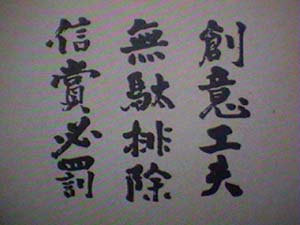 創意工夫
無駄排除
信賞必罰